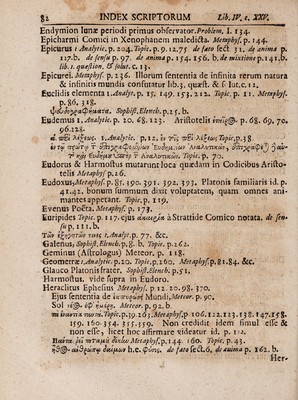 82 INDEX SCRIPTORUM Lib. IV, c. XXV.
Endymion lunæ periodi primus observator. Problem. I. 134.
Epicharmi Comici in Xenophanem maledicta. Metaphys. p. 144.
Epicurus 1. Analytic. p. 204. Topic. p. 9. 12. 75. de fato sect 31. de anima p.
117. b. de sensu p. 97. de anima p. 154. 156. b. de mixtione p. 141. b.
lib. 1. quæstion. & solut. c. 13.
Epicurei. Metaphys. p. 236. Illorum sententia de infinita rerum natura
& infinitis mundis confutatur lib. 3. quæst. & s. lut. c. 12.
Euclidis elementa 1. Analyt. p. 15. 149. 151. 212. Topic. p. 11. Metaphys.
p. 86. 318.
ψευδογραφήματα. Sophist. Elench. p. 25. b.
Eudemus 1. Analytic. p. 20. 68. 123. Aristotelis p. 68. 69. 70.
96. 128.
περὶ λέξεως. 1. Analytic. p. 12. ἐν τῷ περὶ λέξεως Topic. p. 38.
ἐν τῷ πρώτῳ Ἀναλυτικῶν,
Ἀναλυτικῶν. Topic. p. 70.
Eudorus & Harmostus mutarunt loca quædam in Codicibus Aristo-
telis Metaphys. p. 26.
Eudoxus, Metaphys. p. 81. 390. 391. 392. 393. Platonis familiaris id. p.
41. 42. bonum summum dixit voluptatem, quam omnes ani-
mantes appetant. Topic. p. 119.
Evenus Poëta. Metaphys. p. 173.
Euripides Topic. p. 117. ejus à Strattide Comico notata. de sen-
su p. 111. b.
Τῶν ἐξηγητῶν τινες 1. Analyt. p. 77. &c.
Galenus, Sophist. Elench. p. 8. b. Topic. p. 262.
Geminus (Astrologus) Meteor. p. 118.
Geometræ 1. Analytic. p. 20. Topic. p. 160. Metaphys. p. 81. 84. &c.
Glauco Platonis frater. Sophist. Elench. p. 51.
Harmostus. vide supra in Eudoro.
Heraclitus Ephesius Metaphys. p 12. 20. 98. 370.
Ejus sententia de ἐκπυρώσει Mundi, Meteor. p. 90.
Sol Meteor. p. 92. b.
Topic. p. 39. 263. Metaphys. p 106. 122. 123. 138. 147. 158.
159. 160. 354. 355. 359. Non credidit idem simul esse &
non esse, licet hoc affirmare videatur id. p. 132.
Metaphys. p. 144. 160. 200.
ἦθος ἀνθρώπῳ δαίμων h.e. φύσις. de fato sect. 6. de anima p. 162. b.
Her-